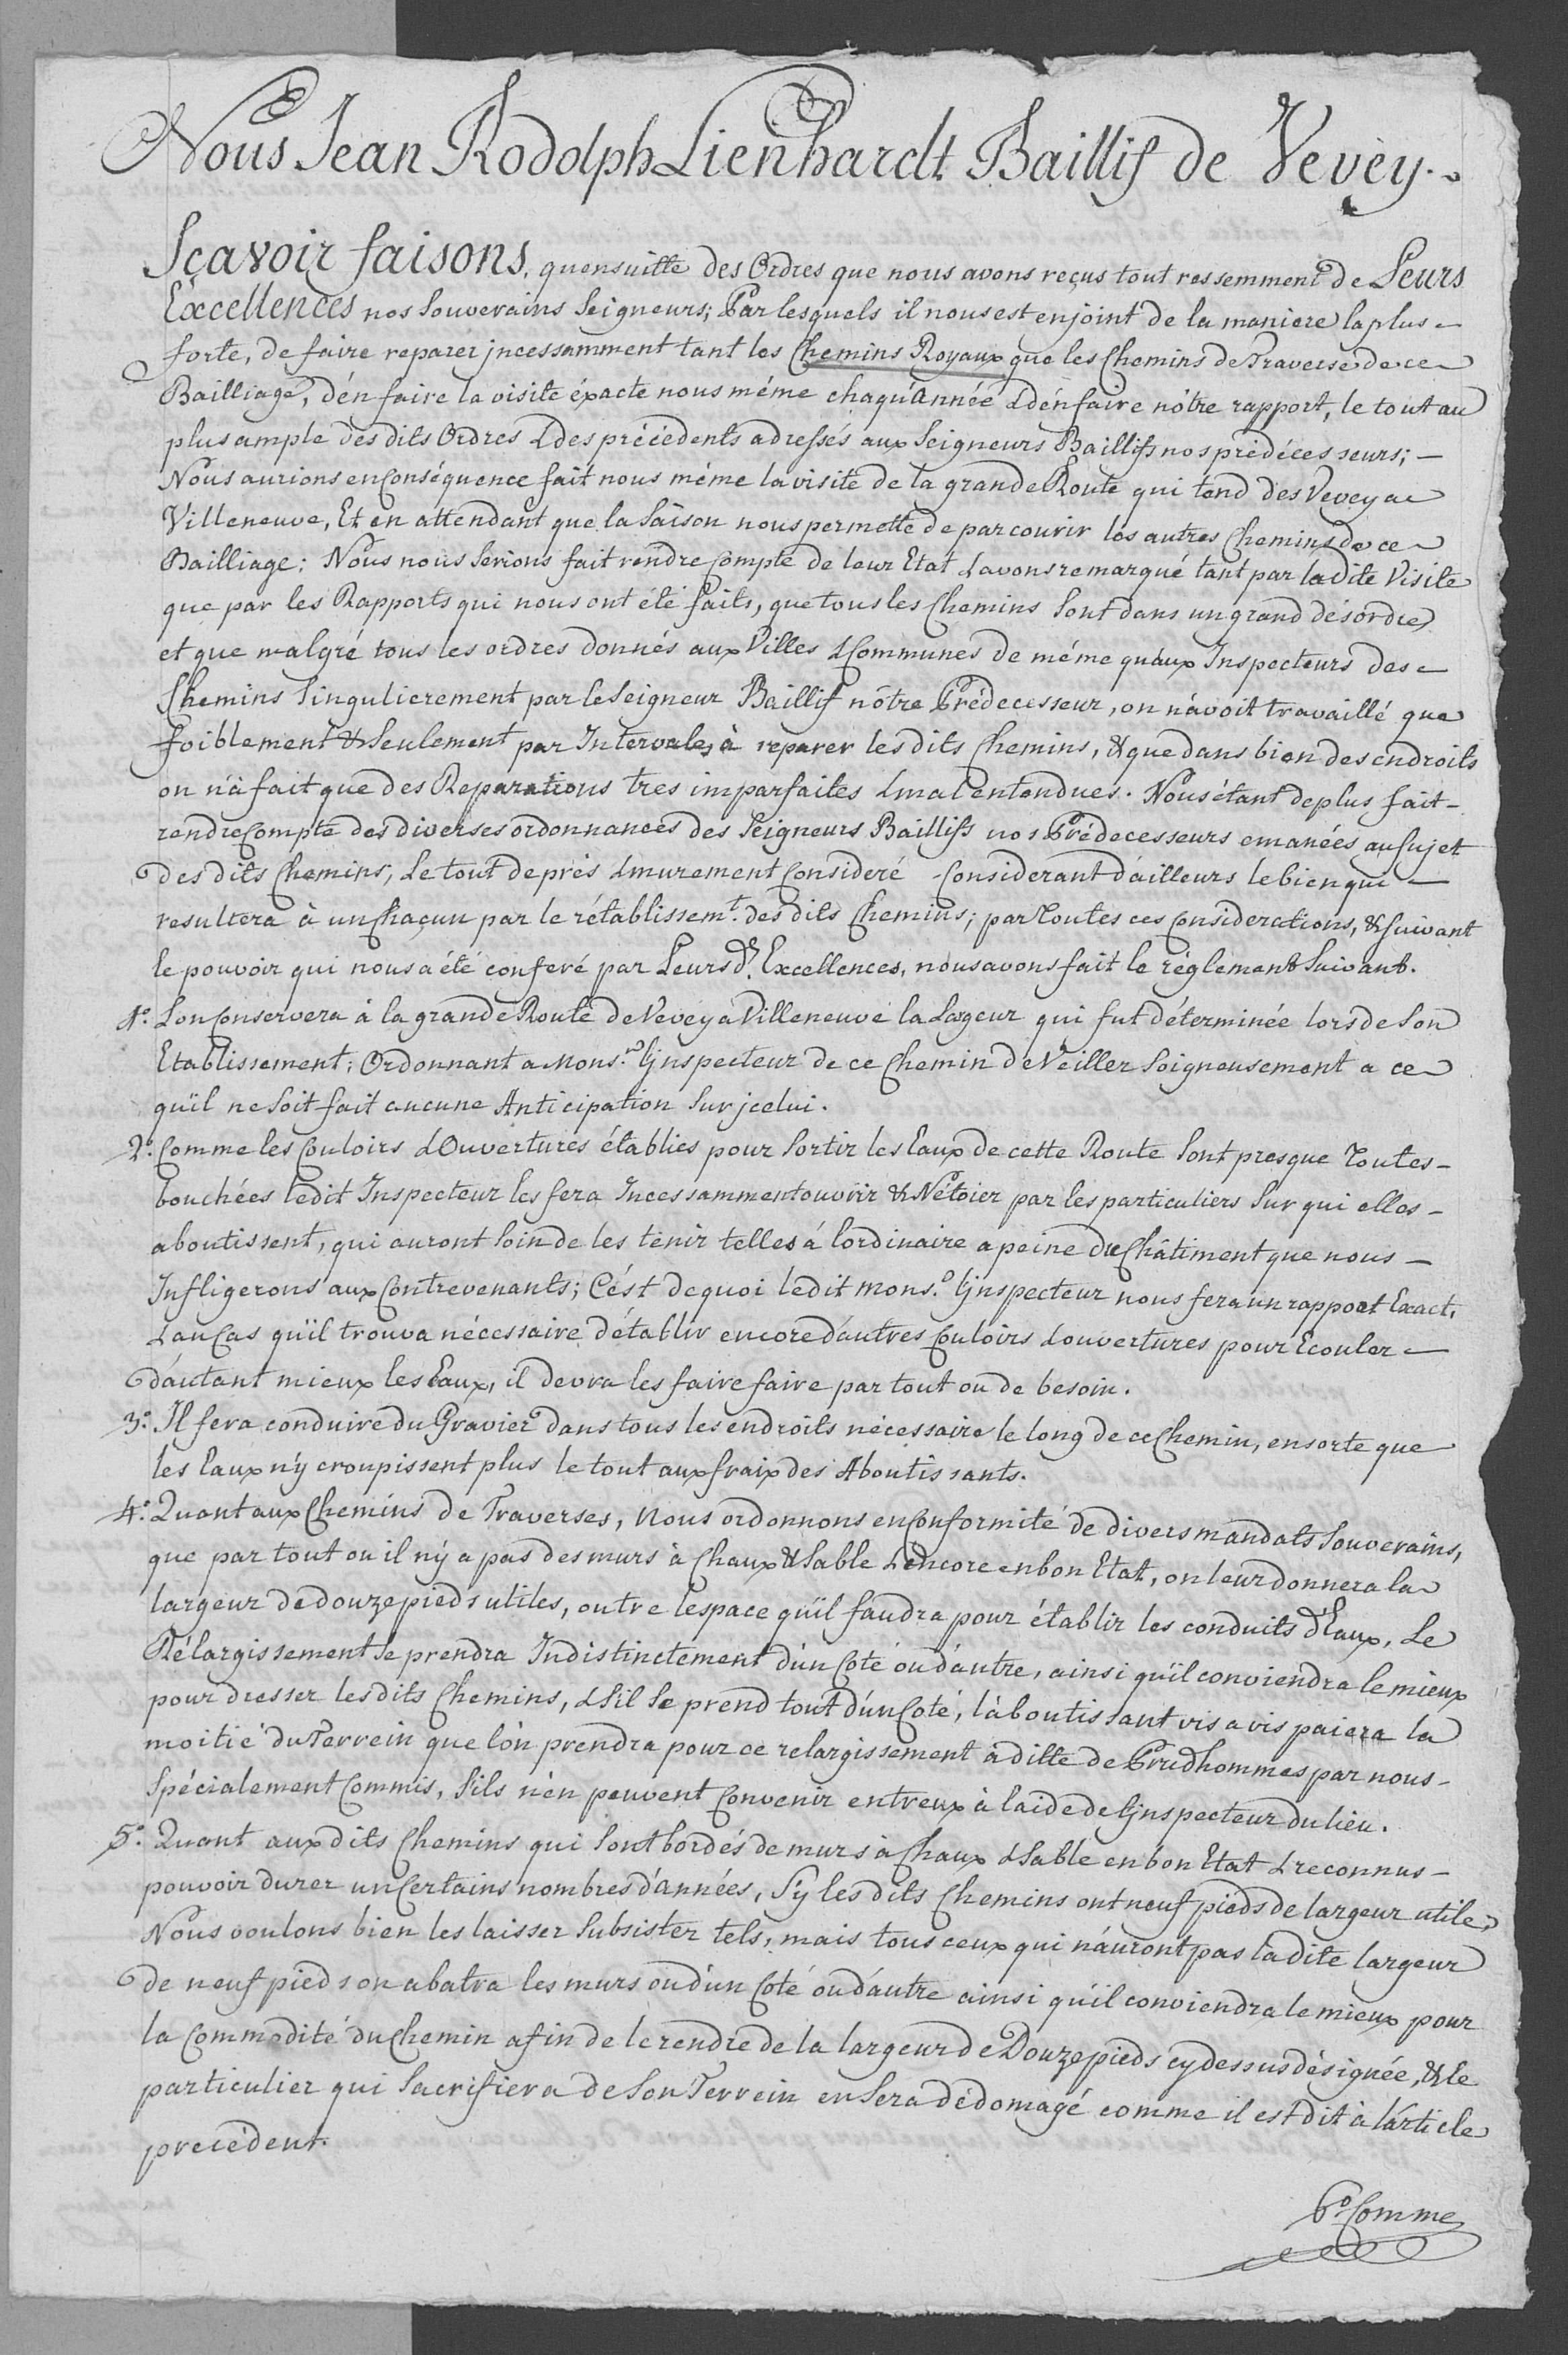 Nous Jean Rodolph Lienhardt Baillif de Vevey.
Sçavoir faisons, quensuitte des Ordres que nous avons reçus tout ressemment de Leurs
Excellences nos Souverains Seigneurs; Par lesquels il nous est enjoint de la maniere la plus
forte, de faire reparer jncessamment tant les Chemins Royaux que les Chemins de Traverse de ce
Bailliage, d'én faire la visite éxacte nous méme chaqu'Année & d'én faire nôtre rapport, le tout au
plus ample des dits Ordres & des précédents adressés aux Seigneurs Baillifs nos prédécesseurs; —
Nous aurions en Conséquence fait nous méme la visite de la grande Route qui tend des Vevey a
Villeneuve, Et en attendant que la Saison nous permette de parcourir les autres Chemins de ce
Bailliage; Nous nous Serions fait rendre Compte de leur Etat & avons remarqué tant par la dite Visite
que par les Rapports qui nous ont été faits, que tous les Chemins Sont dans un grand désordre
et que malgré tous les ordres donnés aux Villes & Communes de méme qu'aux Inspecteurs des
Chemins Singulierement par le Seigneur Baillif nôtre Prédecesseur, on n'avoit travaillé que
foiblement & Seulement par Intervales à reparer les dits Chemins, & que dans bien des endroits
on n'a fait que des Reparations tres imparfaites & mal entendues. Nous étant de plus fait -
rendre Compte des diverses ordonnances des Seigneurs Baillifs nos Prédecesseurs emanées au Sujet
des dits Chemins, Le tout de prés & murement Consideré - Considerant d'ailleurs le bien qui —
resultera à un Chaçun par le rétablissemt. des dits Chemins; par Toutes ces Considerations, & suivant
le pouvoir qui nous a été conferé par Leurs d. Excellences, nous avons fait le réglement Suivant.
1°. L'on Conservera à la grande Route de Vevey a Villeneuve la Largeur qui fut déterminée lors de Son
Etablissement; Ordonnant a Mons.r l'jnspecteur de ce Chemin de Veiller Soigneusement a ce
qu'il ne Soit fait aucune Anticipation Sur jcelui.
2°. Comme les Couloirs & Ouvertures établies pour Sortir les Eaux de cette Route Sont presque Toutes -
bouchées ledit Inspecteur les fera Incessamment ouvrir & Nétoier par les particuliers Sur qui elles -
aboutissent, qui auront Soin de les tenir telles á l'ordinaire a peine du Châtiment que nous —
Infligerons aux Contrevenants; C'ést de quoi ledit Mons.r l'jnspecteur nous fera un rapport Exact,
& au Cas qu'il trouva nécessaire d'établir encore d'autres Couloirs & ouvertures pour Ecouler —
d'autant mieux les Eaux, il devra les faire faire par tout ou de besoin.
3°. Il fera conduire du Gravier dans tous les endroits nécessaire le long de ce Chemin, ensorte que
les Eaux n'y croupissent plus le tout aux fraix des Aboutissants.
4°. Quant aux Chemins de Traverses, Nous ordonnons en Conformité de divers mandats Souverains,
que par tout ou il n'y a pas des murs à Chaux & Sable & encore en bon Etat, on leur donnera la
largeur de douze pieds utiles, outre lespace qu'il faudra pour établir les conduits d'Eaux, Le
Rélargissement Se prendra Indistinctement d'un Coté ou d'autre, ainsi qu'il conviendra le mieux
pour dresser les dits Chemins, & S'il Se prend tout d'un Coté, l'aboutissant vis a vis paiera la
moitié du Terrein que l'ón prendra pour ce relargissement à ditte de Prudhommes par nous -
Spécialement Commis, S'ils n'én peuvent Convenir entreux à l'aide de l'jnspecteur du lieu.
5°. Quant aux dits Chemins qui Sont bordés de murs à Chaux & Sable en bon Etat & reconnus -
pouvoir durer un Certains nombres d'années, Sy les dits Chemins ont neuf pieds de largeur utile,
Nous voulons bien les laisser Subsister tels, mais tous ceux qui n'áuront pas la dite largeur
de neuf pieds on abatra les murs ou d'un Coté ou d'autre ainsi qu'il conviendra le mieux pour
la Commodité du Chemin afin de le rendre de la largeur de Douze pieds cy dessus désignée, & le
particulier qui Sacrifiera de Son Terrein en Sera dédomagé comme il est dit à l'article
precédent.
6°. Comme